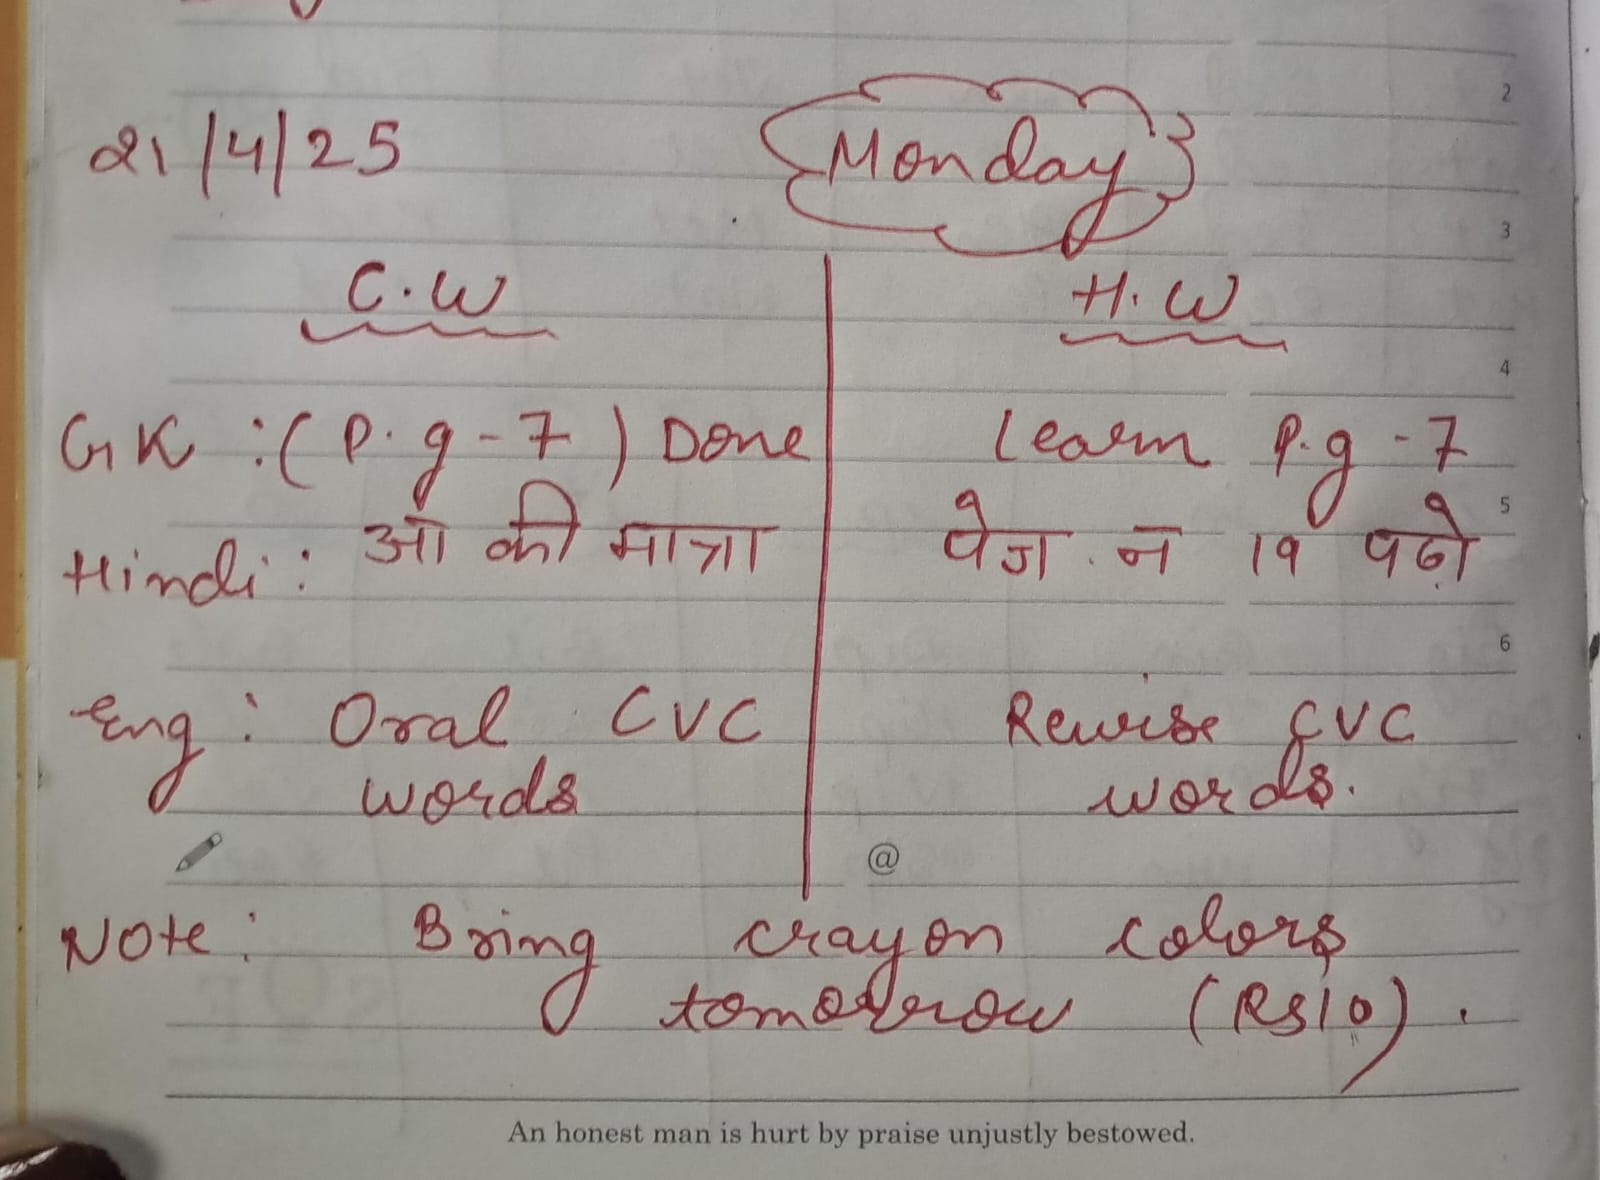 2
21/4/25 Monday
3
C.W H.W
4
GK :( P.g-7 ) Done Learn P.g-7
5
Hindi: ओ की मात्रा पेज न 19 पढो़
6
Eng: Oral CVC Rewise CVC
words words.
@
Note: Bring crayon colors
tomorrow (Rs10).
An honest man is hurt by praise unjustly bestowed.